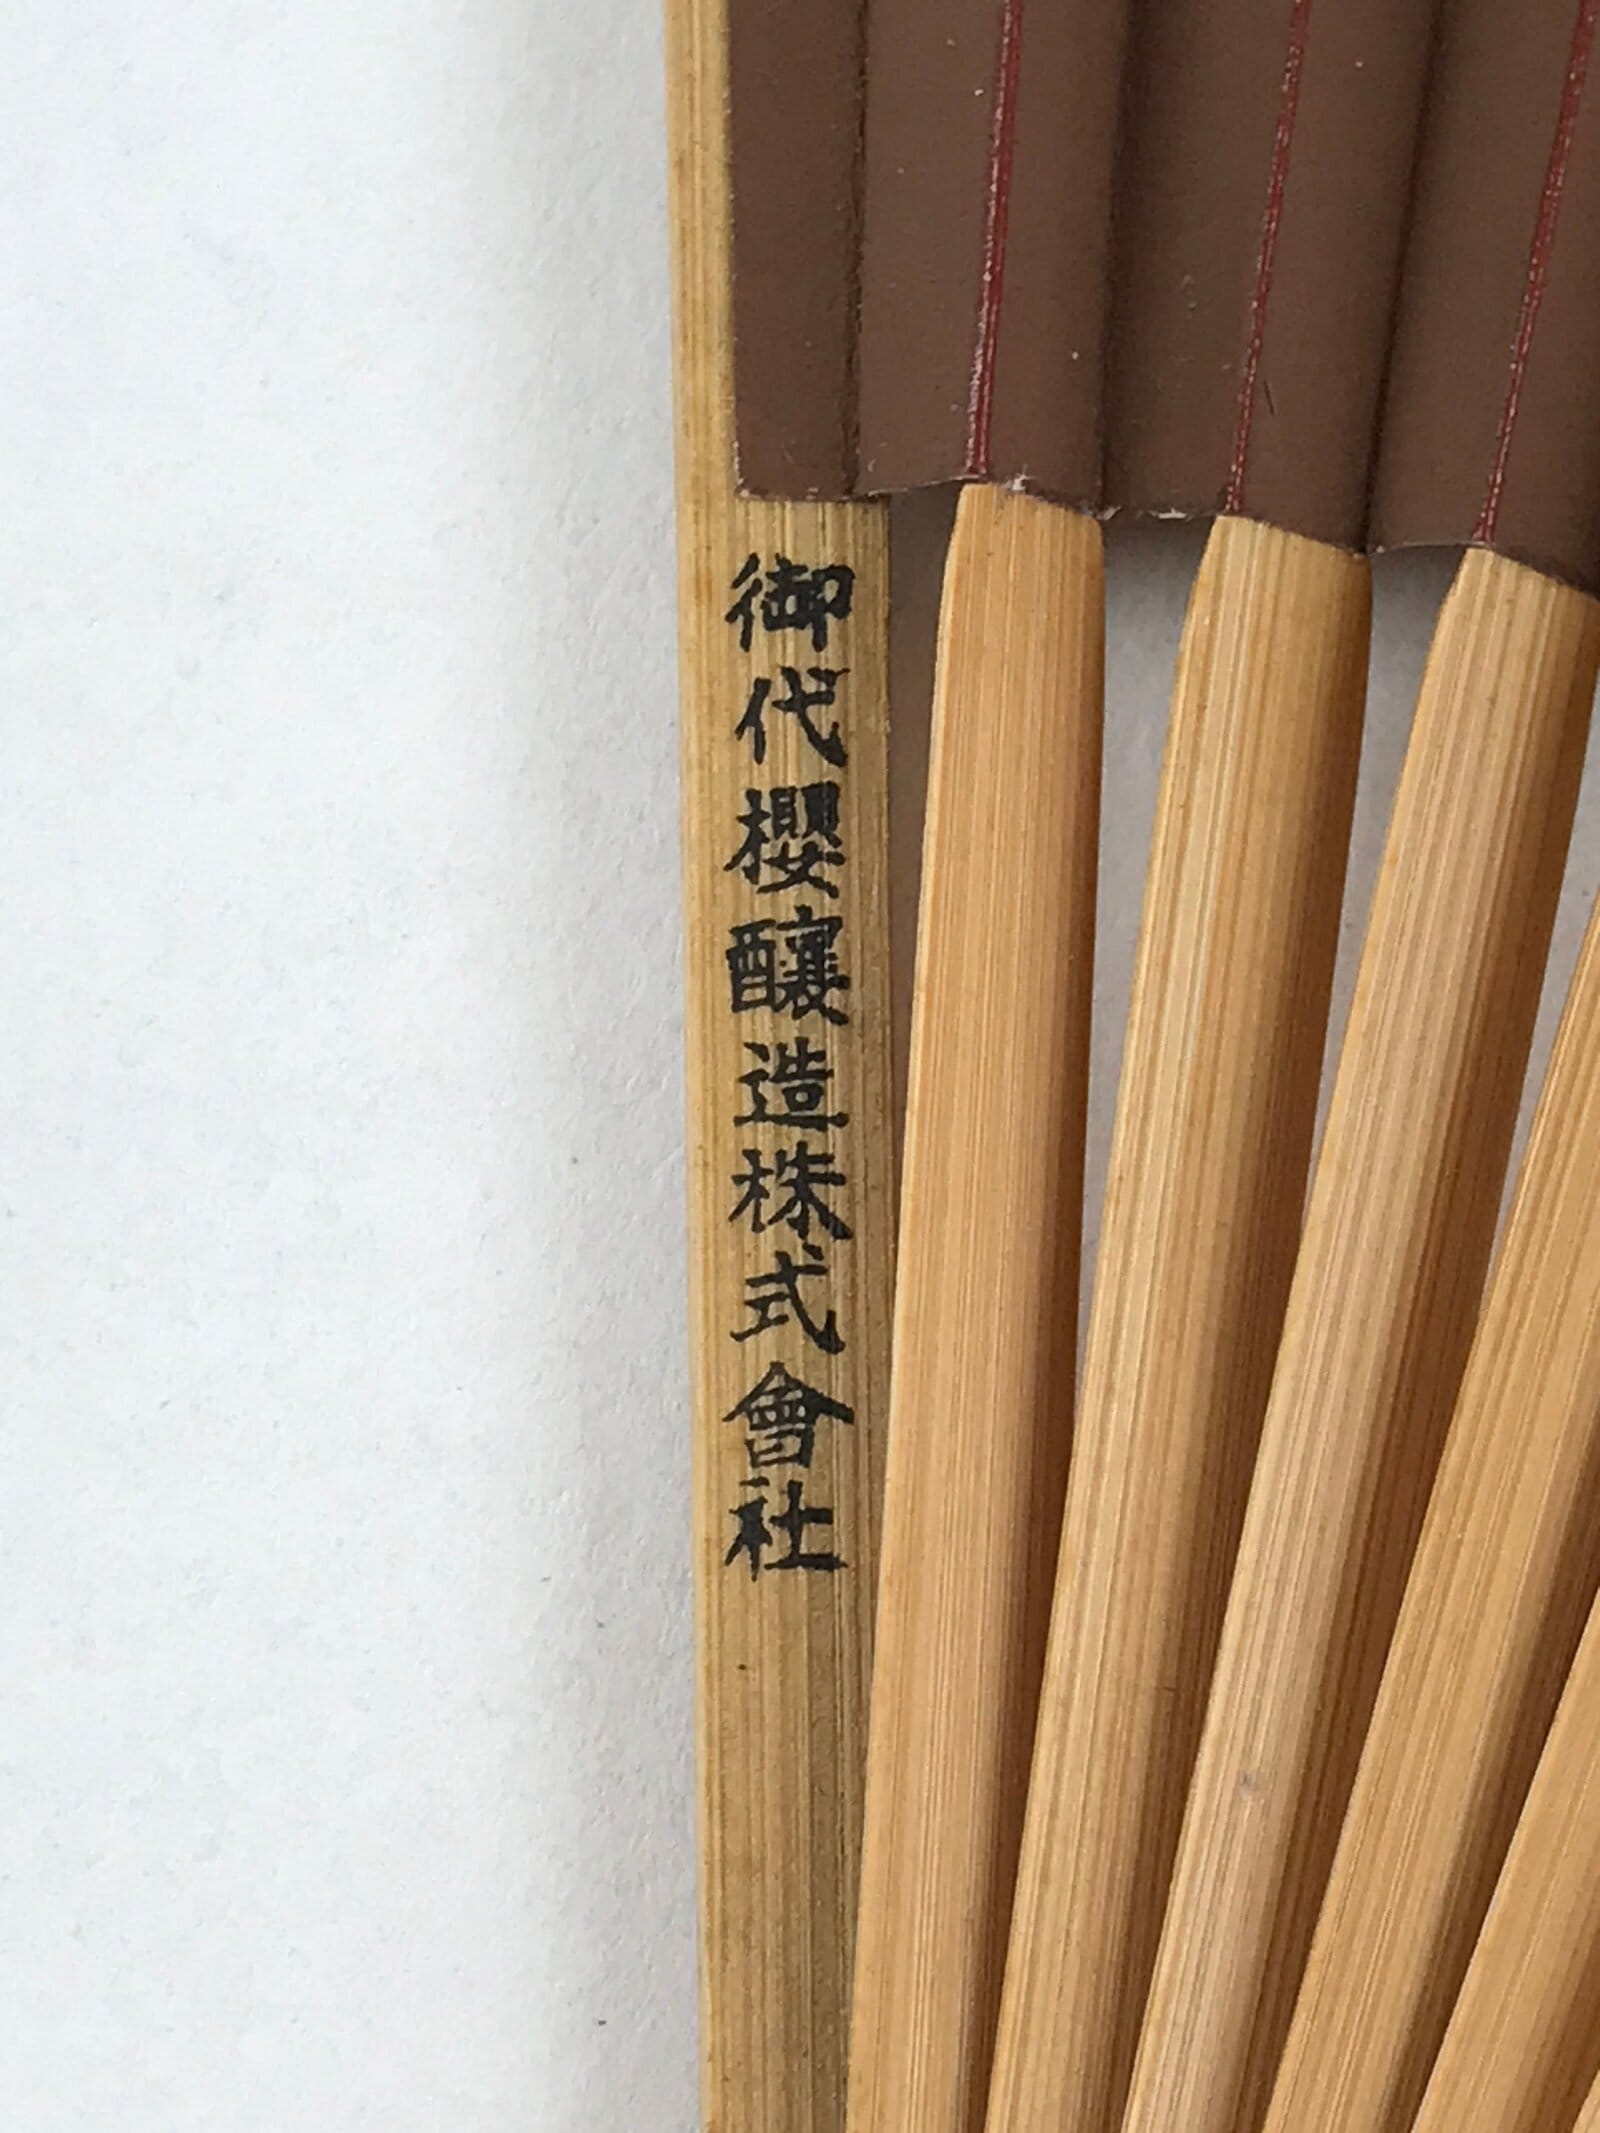 御代櫻釀造株式會社